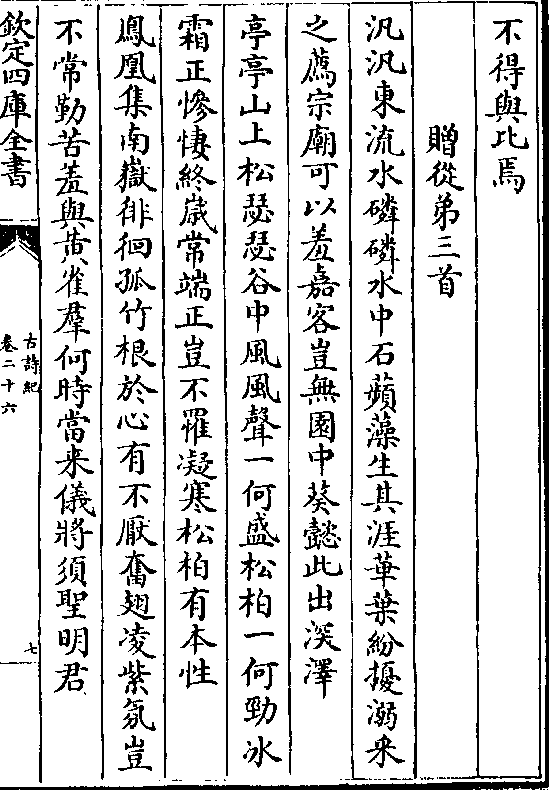 不得與比焉
贈從弟三首
汎汎東流水磷磷水中石蘋藻生其涯華葉紛擾溺采
之薦宗廟可以羞嘉客豈無園中葵懿此出深澤
亭亭山上松瑟瑟谷中風風聲一何盛松柏一何勁冰
霜正慘悽終嵗常端正豈不罹凝寒松柏有本性
鳳凰集南嶽徘徊孤竹根於心有不厭奮翅凌紫氛豈
不常勤苦羞與黄雀羣何時當来儀將須聖明君
欽定四庫全書
古詩紀
卷二十六
七